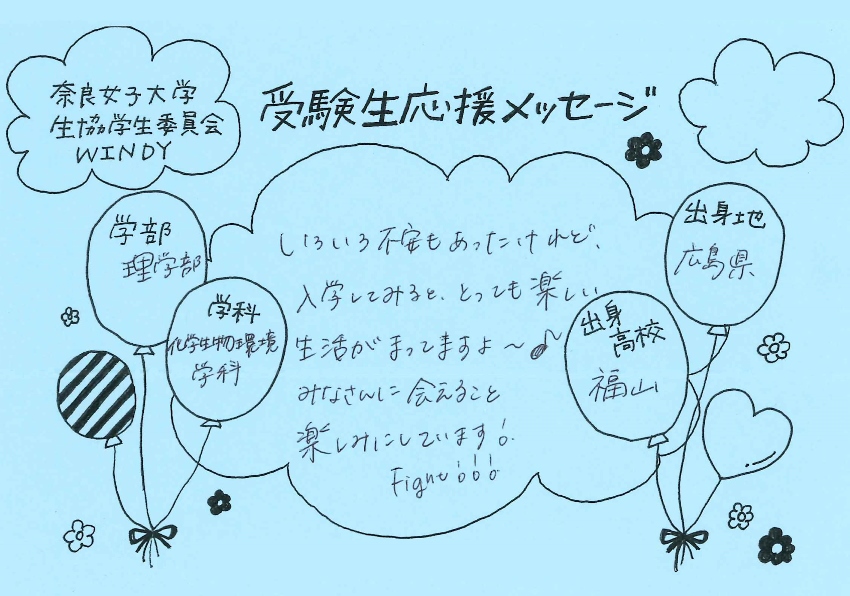 奈良女子大学
生協学生委員会
WINDY
受験生応援メッセージ
学部
理学部
学科
化学生物環境
学科
いろいろ不安もあったけれど、
入学してみると、とっても楽しい
生活がまってますよ〜♪
みなさんに会えること
楽しみにしています!
Fight!!!
出身地
広島県
出身
高校
福山